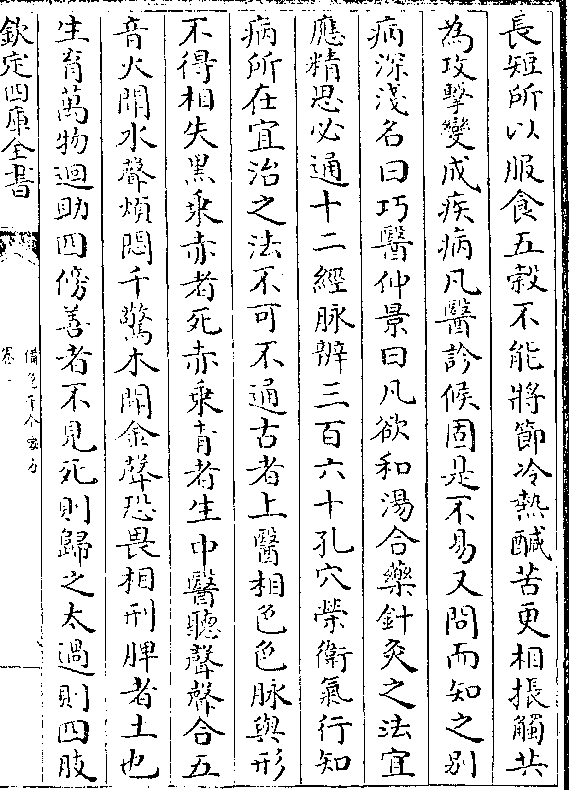 長短所以服食五穀不能將節冷熱醎苦更相振觸共
為攻擊變成疾病凡醫診候固是不易又問而知之别
病深淺名曰巧醫仲景曰凡欲和湯合藥針灸之法宜
應精思必通十二經脉辨三百六十孔穴榮衛氣行知
病所在宜治之法不可不通古者上醫相色色脉與形
不得相失黒乘赤者死赤乘青者生中醫聽聲聲合五
音火聞水聲煩悶千驚木聞金聲恐畏相刑脾者土也
生育萬物迴助四傍善者不見死則歸之太過則四肢
欽定四庫全書
備急千金要方
卷一